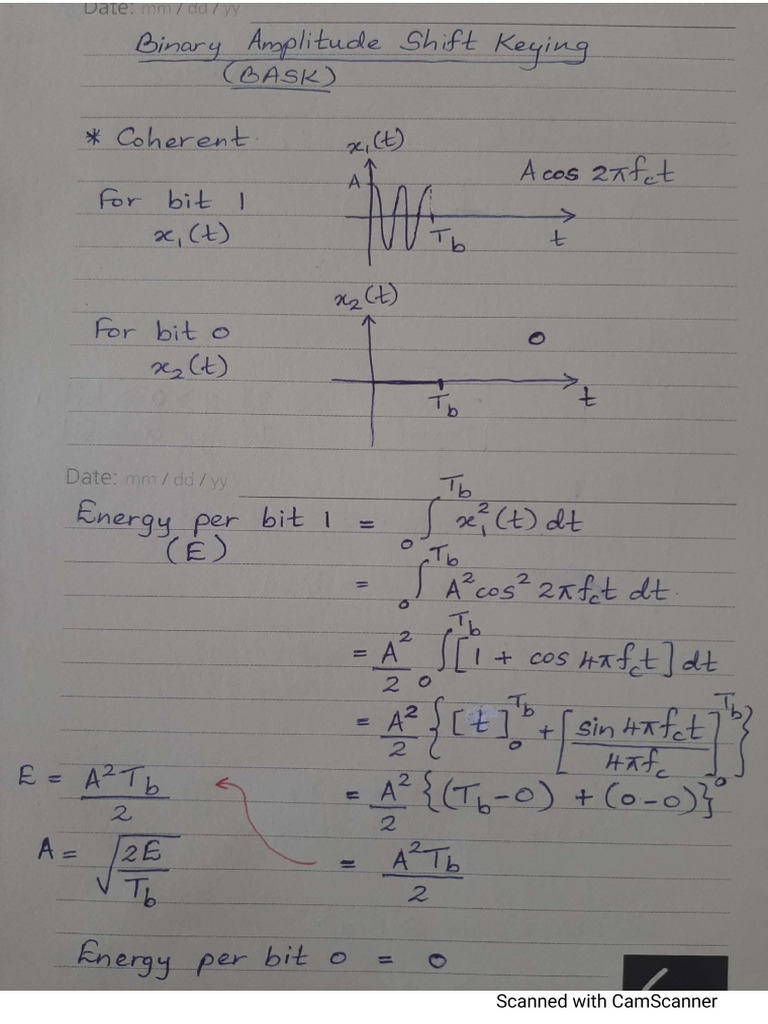 Date: mm / dd / yy
Binary Amplitude Shift Keying
(BASK)
* Coherent.
x₁(t)
A cos 2πf_ct
A
For bit 1
x₁(t)
T_b
t
x₂(t)
For bit 0
0
x₂(t)
T_b
t
Date: mm / dd / yy
Energy per bit 1 = ∫₀^{T_b} x₁²(t) dt
(E)
= ∫₀^{T_b} A² cos² 2πf_ct dt.
= A²/2 ∫₀^{T_b} [1 + cos 4πf_ct] dt
= A²/2 { [t]₀^{T_b} + [sin 4πf_ct / 4πf_c]₀^{T_b} }
E = A²T_b / 2
= A²/2 {(T_b - 0) + (0 - 0)}
A = √(2E / T_b)
= A²T_b / 2
Energy per bit 0 = 0
Scanned with CamScanner